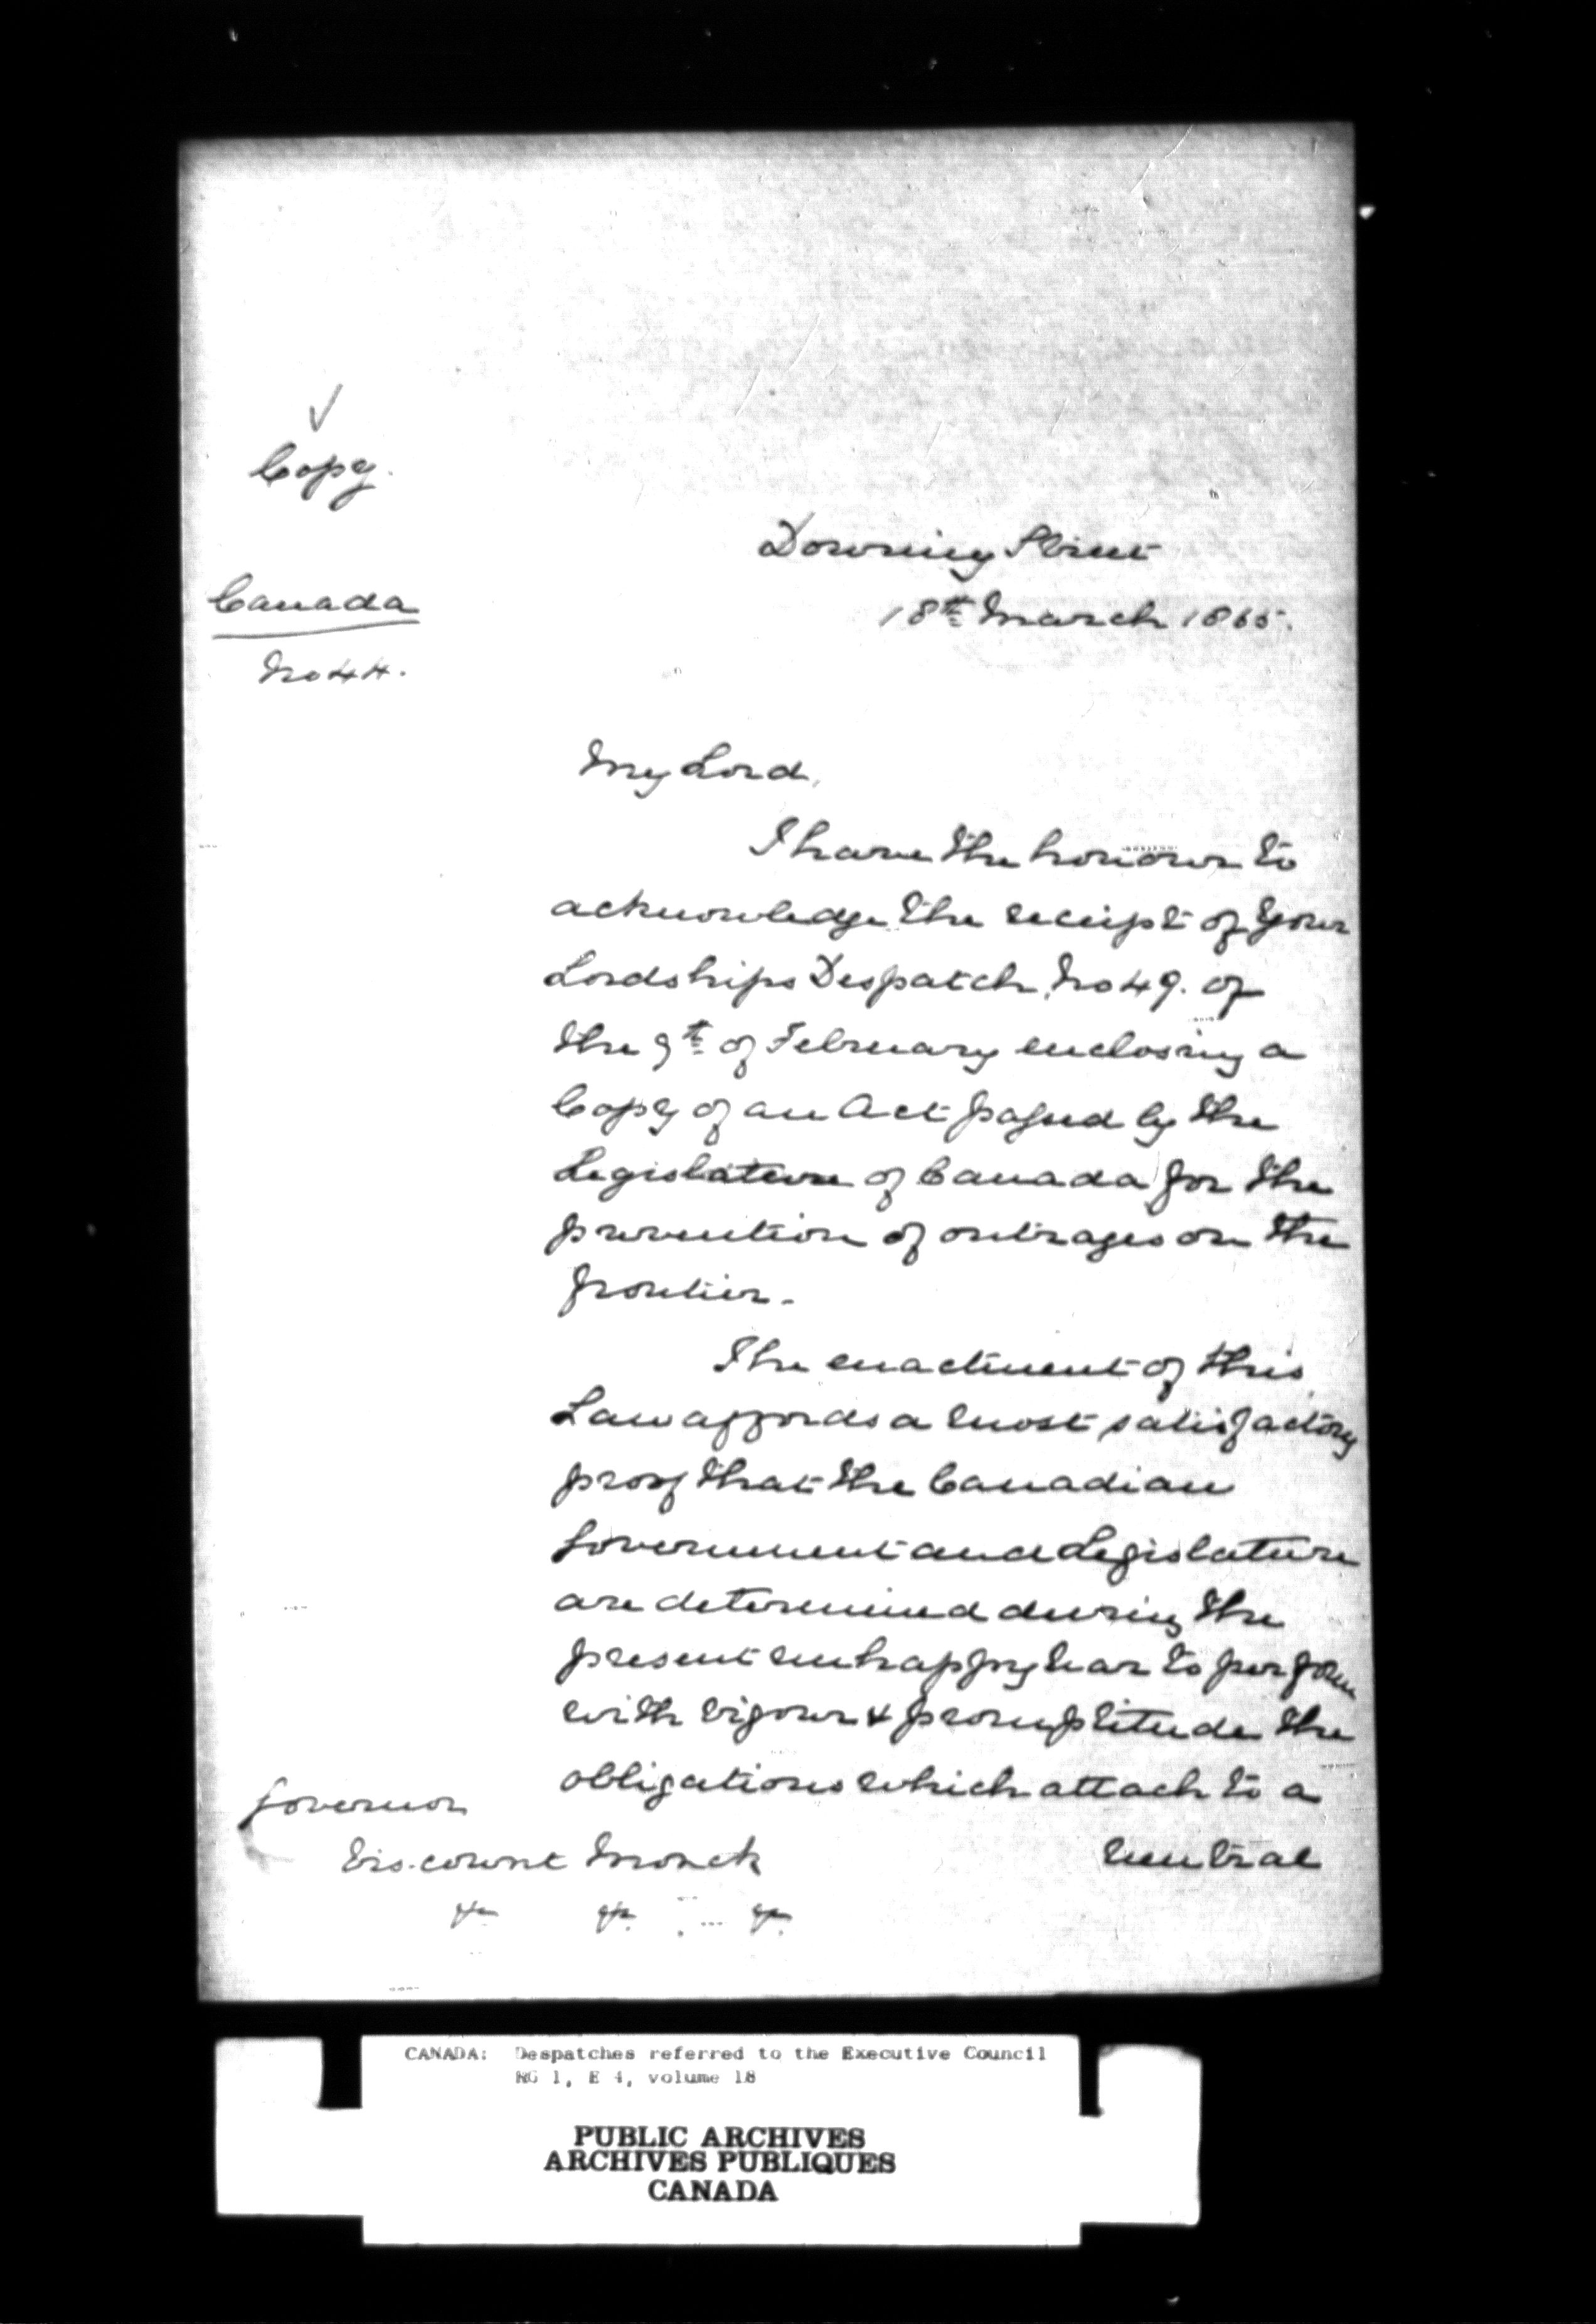 Copy.
Downing Street
18th March 1865.
Canada
No 44.
My Lord,
I have the honour to
acknowledge the receipt of Your
Lordships Despatch, No 49. of
the 9th of February enclosing a
Copy of an Act passed by the
Legislature of Canada for the
prevention of outrages on the
frontier.
The enactment of this
Law affords a most satisfactory
proof that the Canadian
Government and Legislature
are determined during the
present unhappy War to perform
with vigour & promptitude the
obligations which attach to a
neutral
Governor
Viscount Monck
&c &c. &c.
CANADA: Despatches referred to the Executive Council
RG 1, E 4, volume 18
PUBLIC ARCHIVES
ARCHIVES PUBLIQUES
CANADA